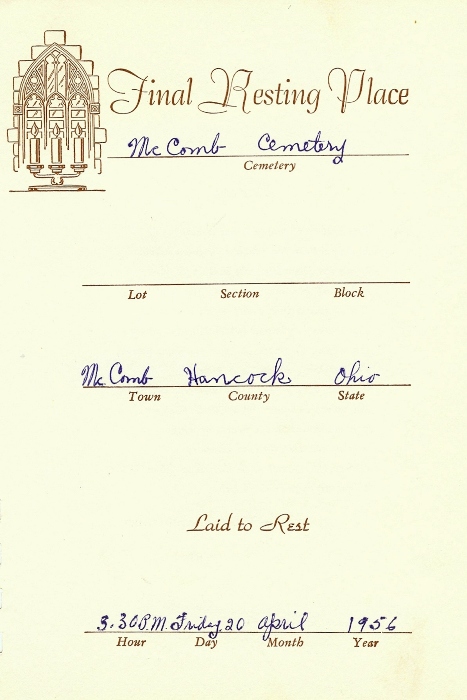 Final Resting Place
Mc Comb Cemetery
Cemetery
Lot Section Block
Mc Comb Hancock Ohio
Town County State
Laid to Rest
3.30 P.M. Friday 20 April 1956
Hour Day Month Year